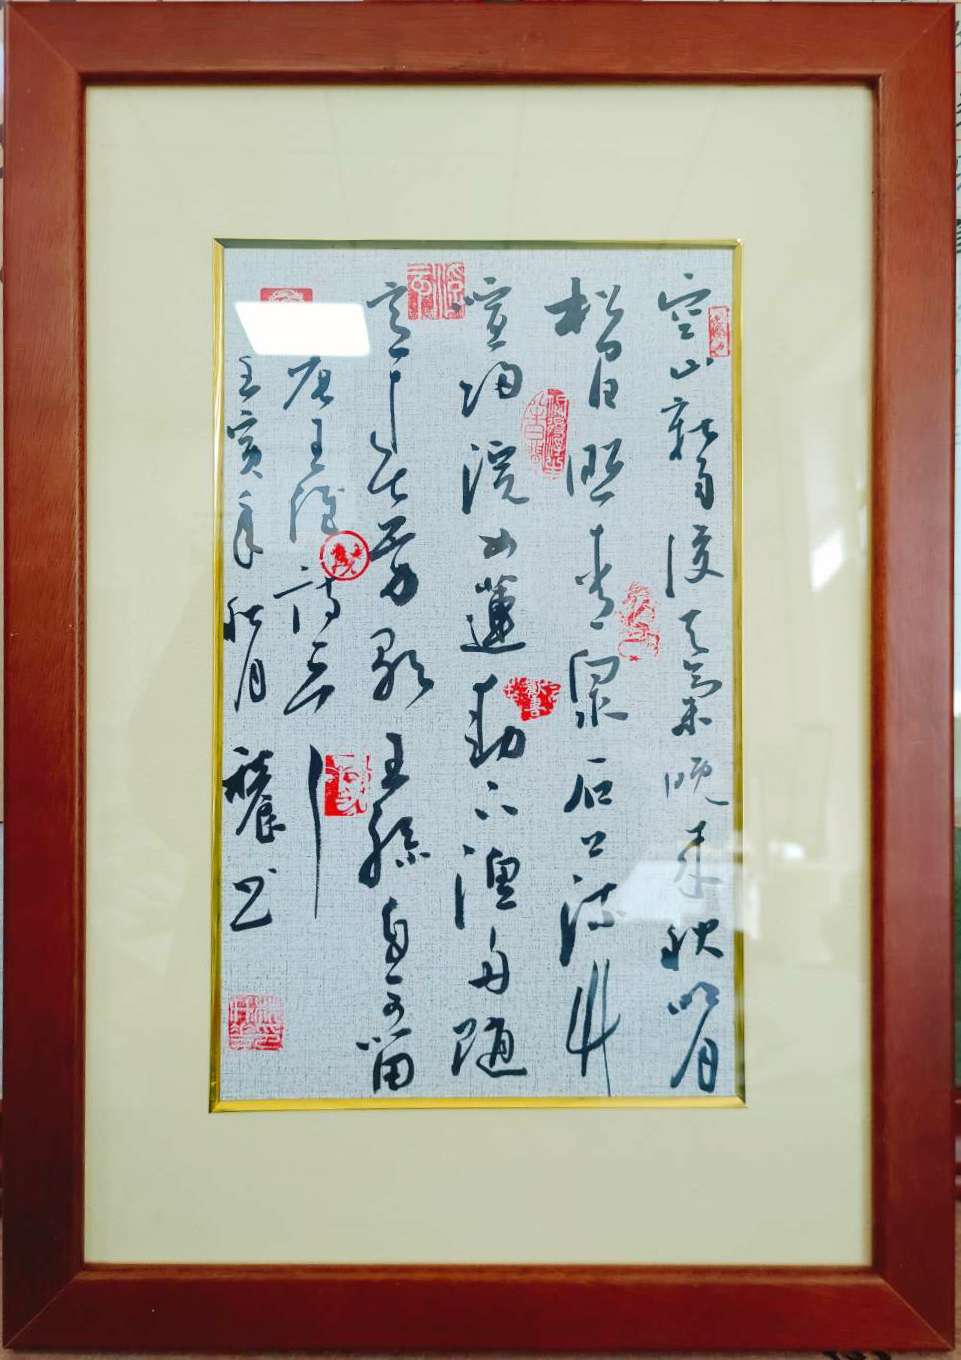 空山新雨後天氣晚來秋明月
松間照青泉石上流竹
喧歸浣女蓮動下漁舟隨
意芳歇王孫自可留
唐王維詩
壬寅年秋月书